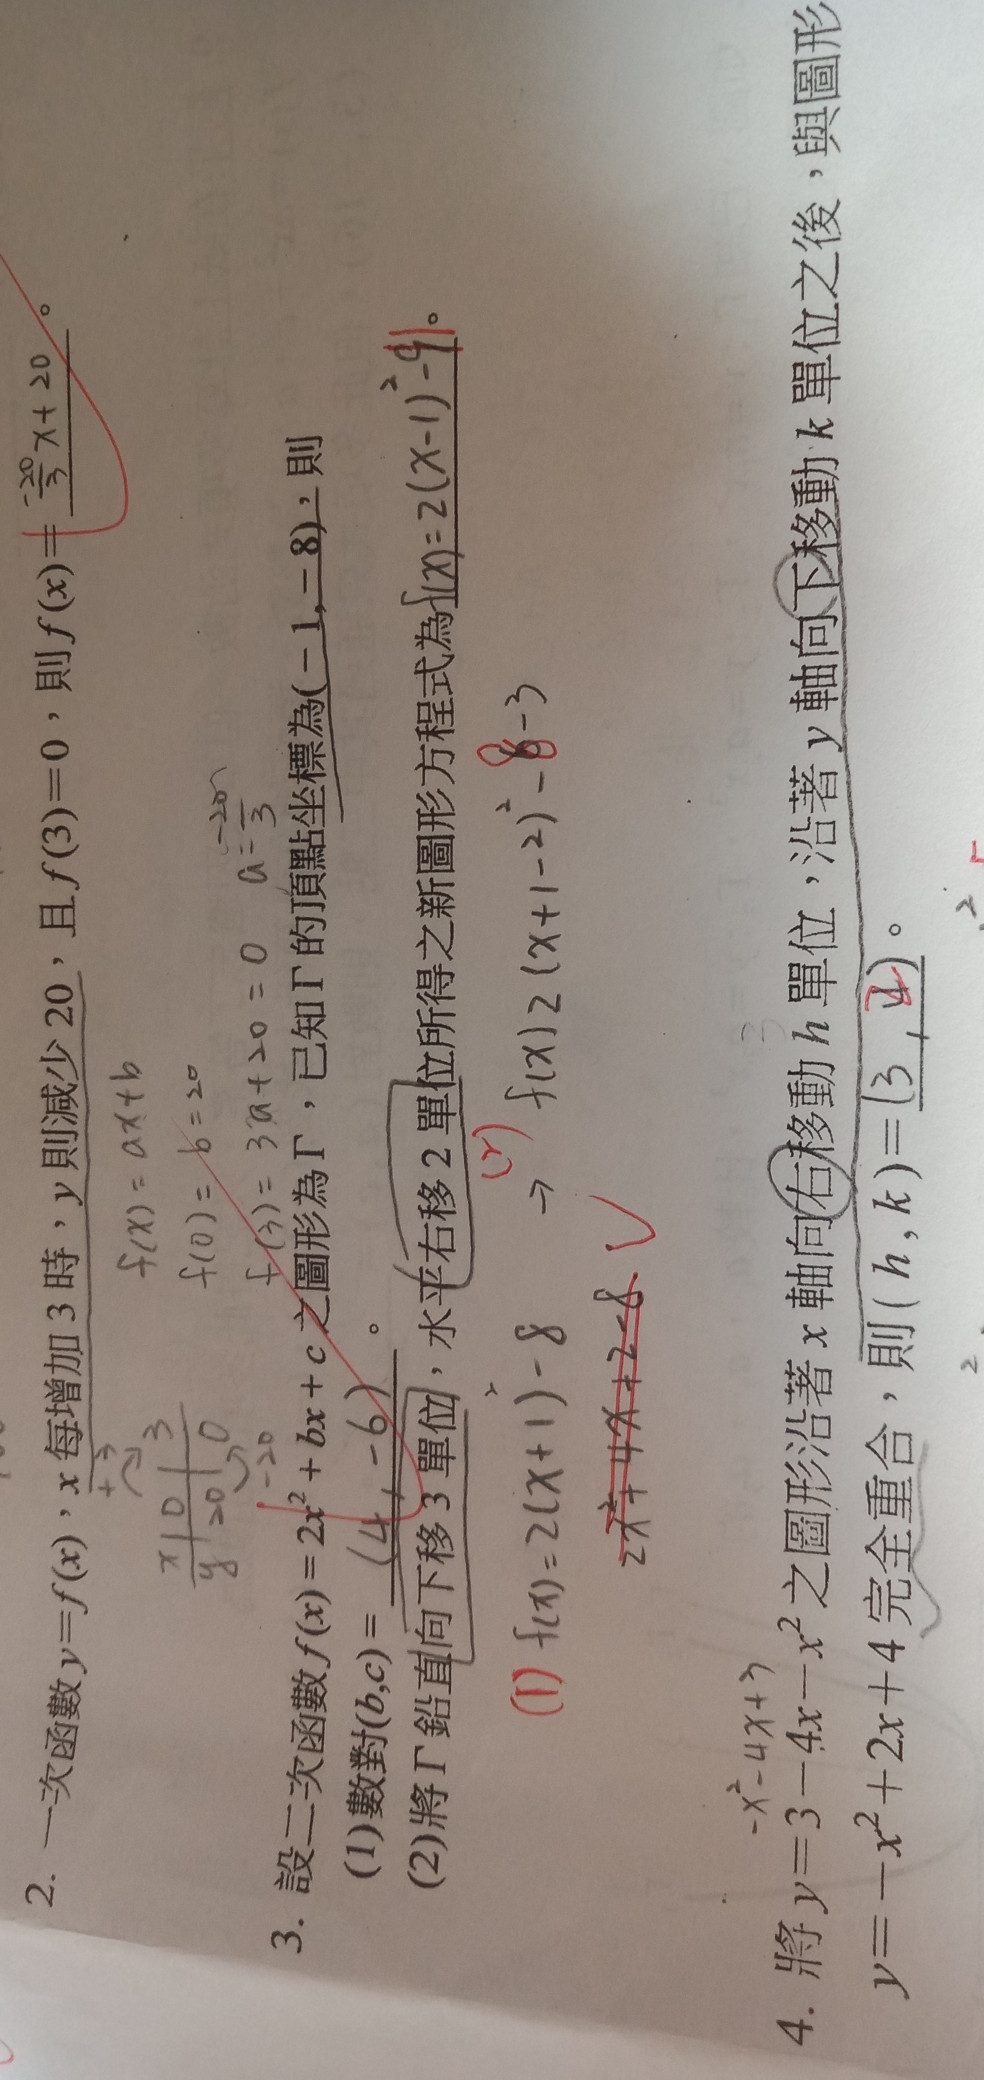 2. 一次函數 y=f(x),x 每增加 3 時,y 則減少 20,且 f(3)=0,則 f(x)= -20/3 x+20 。
+3
x 0 3
y 20 0
-20
f(x)=ax+b
f(0)=b=20
f(3)=3a+20=0 a=-20/3
3. 設二次函數 f(x)=2x²+bx+c 之圖形為Γ,已知Γ的頂點坐標為(-1,-8),則
(1)數對(b,c)= (4,-6) 。
(2)將Γ鉛直向下移 3 單位,水平右移 2 單位所得之新圖形方程式為 f(x)=2(x-1)²-11。
(1) f(x)=2(x+1)²-8 → (2) f(x)2(x+1-2)²-8-3
2x²+4x+2-8
-x²-4x+3
4. 將 y=3-4x-x² 之圖形沿著 x 軸向右移動 h 單位,沿著 y 軸向下移動 k 單位之後,與圖形
y=-x²+2x+4 完全重合,則(h,k)= (3,  。